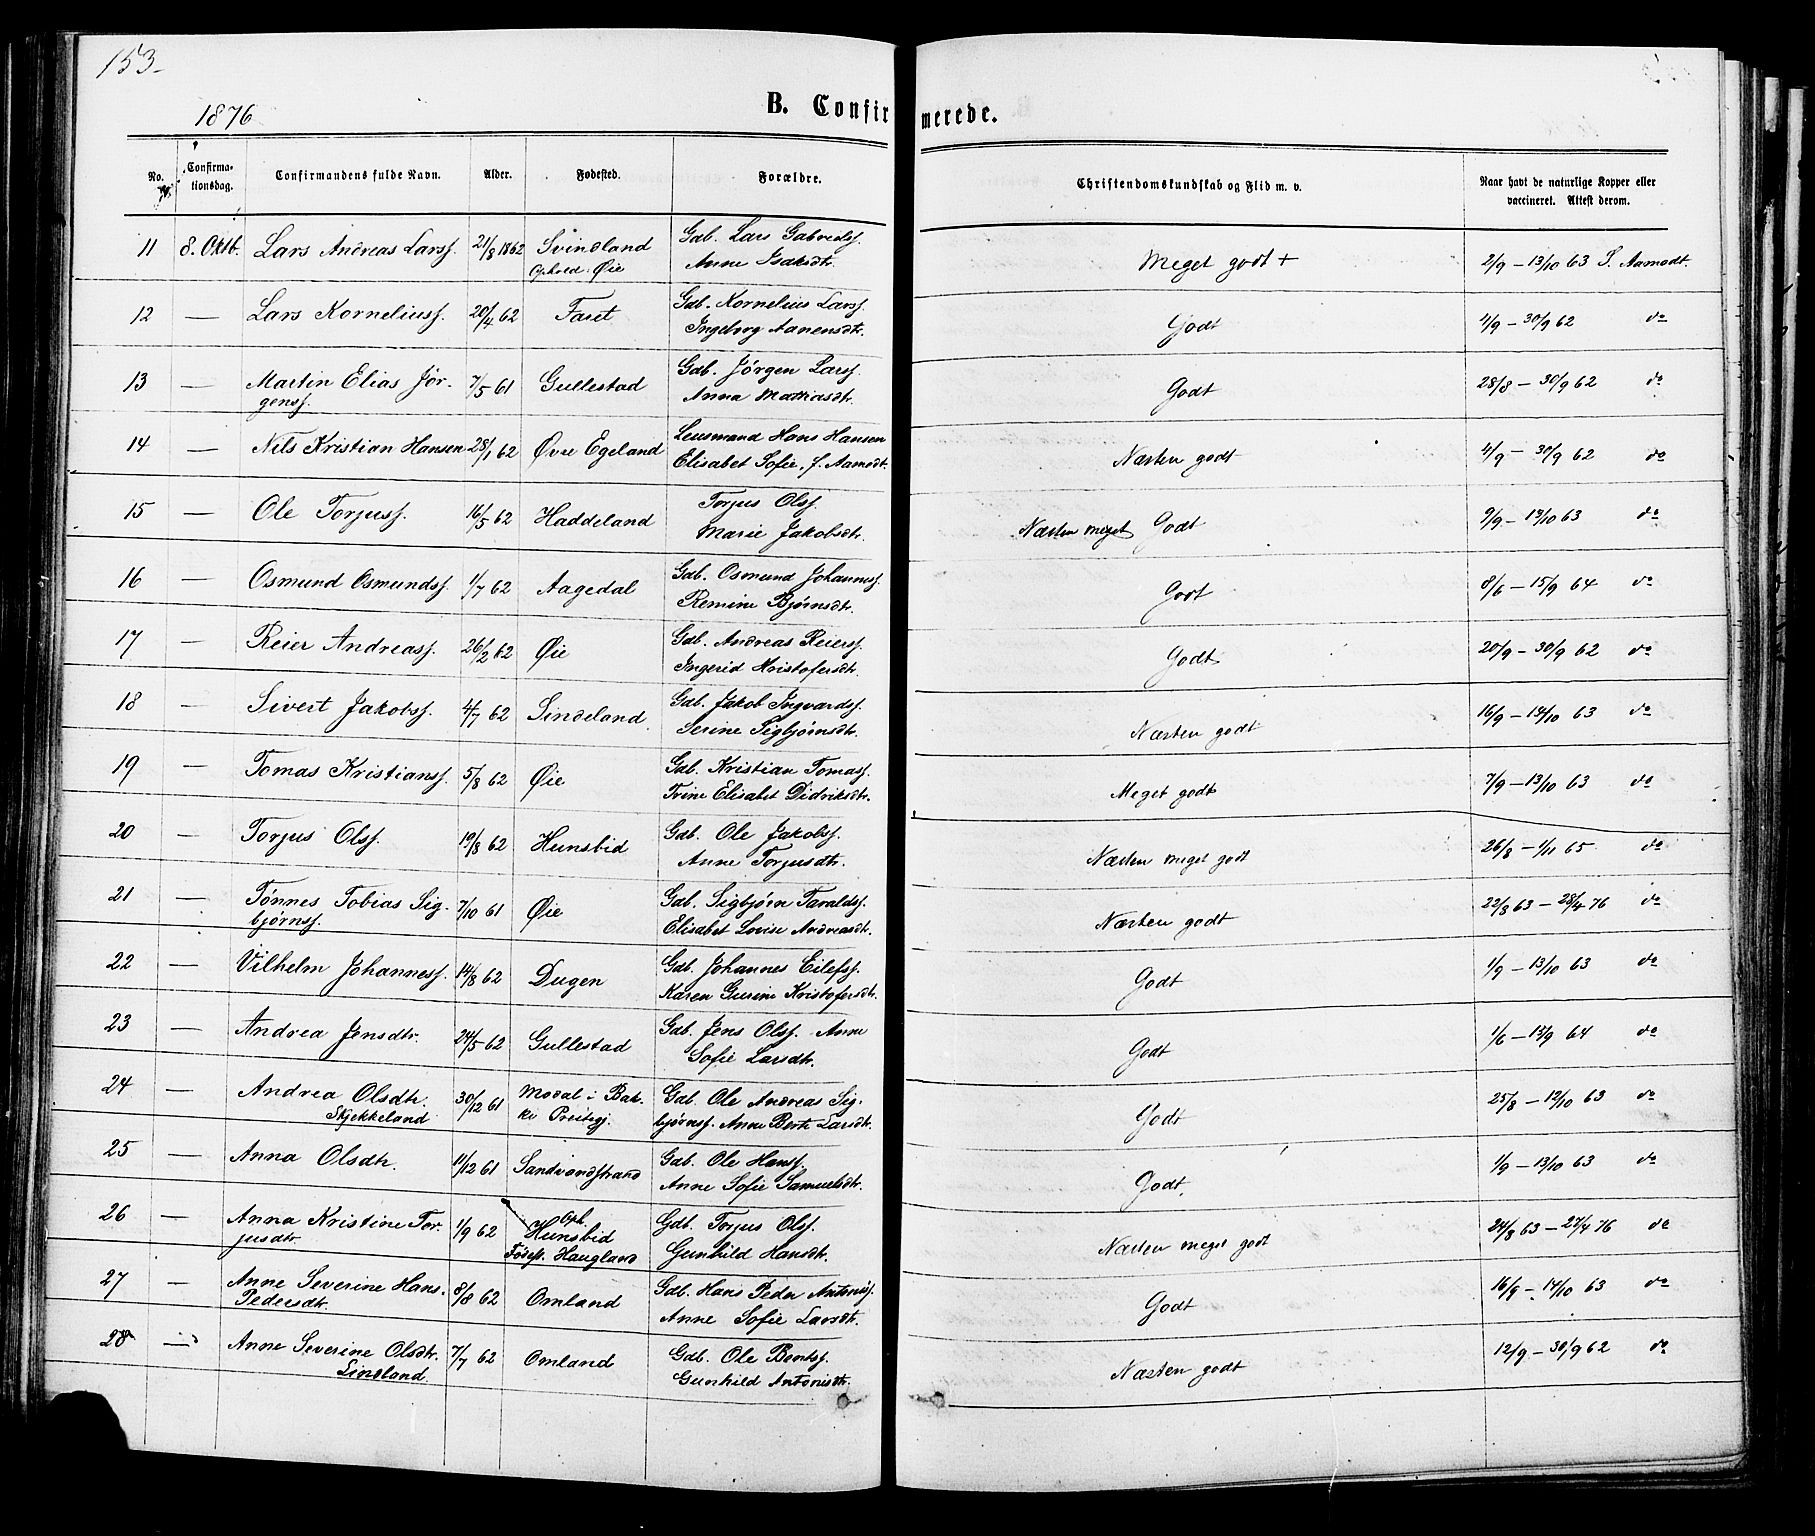 153.
1876
B. Confirmerede.
No. Confirmationsdag. Confirmandens fulde Navn. Alder. Fødested. Forældre. Christendomskundskab og Flid m. v. Naar havt de naturlige Kopper eller vaccineret. Attest derom.
11 8. Oktb. Lars Andreas Larss. 21/8 1862 Svindland Gdb. Lars Gabrielss. Meget godt + 2/9 – 13/10 63 S. Aamodt.
Ophold. Øie Anne Isaksdtr.
12 — Lars Korneliuss. 20/4 62 Faret Gdb. Kornelius Larss. Godt 4/9 – 30/9 62 do
Ingeborg Aanensdtr.
13 — Martin Elias Jør- 7/5 61 Gullestad Gdb. Jørgen Larss. Godt 28/8 – 30/9 62 do
genss. Anna Mathiasdtr.
14 — Nils Kristian Hansen 28/1 62 Øvre Egeland Lensmand Hans Hansen Næsten godt 4/9 – 30/9 62 do
Elisabet Sofie, f. Aamodt.
15 — Ole Torjuss. 16/5 62 Haddeland Torjus Olss. Næsten meget Godt 9/9 – 13/10 63 do
Marie Jakobsdtr.
16 — Osmund Osmundss. 1/7 62 Aagedal Gdb. Osmund Johanness. Godt 8/6 – 15/9 64 do
Remine Bjørnsdtr.
17 — Reier Andreass. 26/2 62 Øie Gdb. Andreas Reierss. Godt 20/9 – 30/9 62 do
Ingerid Kristofersdtr.
18 — Sivert Jakobss. 4/7 62 Sindeland Gdb. Jakob Ingvardss. Næsten godt 16/9 – 13/10 63 do
Serine Sigbjørnsdtr.
19 — Tomas Kristianss. 5/8 62 Øie Gdb. Kristian Tomass. Meget godt 7/9 – 13/10 63 do
Trine Elisabet Didriksdtr.
20 — Torjus Olss. 19/8 62 Hunsbid Gdb. Ole Jakobss. Næsten meget godt 26/8 – 1/11 65 do
Anne Torjusdtr.
21 — Tønnes Tobias Sig- 7/10 61 Øie Gdb. Sigbjørn Taraldss. Næsten godt 22/8 63 – 28/4 76 do
bjørnss. Elisabet Lovise Andreasdtr.
22 — Vilhelm Johanness. 14/8 62 Dugen Gdb. Johannes Eilefss. Godt 1/9 – 13/10 63 do
Karen Gurine Kristofersdtr.
23 — Andrea Jensdtr. 24/5 62 Gullestad Gdb. Jens Olss. Anne Godt 1/6 – 13/9 64 do
Sofie Larsdtr.
24 — Andrea Olsdtr. 30/12 61 Modal i Bak- Gdb. Ole Andreas Sig- Godt 25/8 – 12/10 63 do
Skjekkeland ke Prestegj. bjørnss. Anne Berte Larsdtr.
25 — Anna Olsdtr. 11/12 61 Sandvandstrand Gdb. Ole Hanss. Godt 1/9 – 13/10 63 do
Anne Sofie Samuelsdtr.
26 — Anna Kristine Tor- 1/9 62 Oph. Hunsbid Gdb. Torjus Olss. Næsten meget godt 24/8 63 – 27/4 76 do
jusdtr. Fødest. Haugland Gunhild Hansdtr.
27 — Anne Severine Hans- 8/8 62 Omland Gdb. Hans Peder Antoniss. Godt 16/9 – 14/10 63 do
Pedersdtr. Anne Sofie Larsdtr.
28 — Anne Severine Olsdtr. 7/7 62 Omland Gdb. Ole Bentss. Næsten godt 12/9 – 30/9 62 do
Linsland Gunhild Antonisdtr.